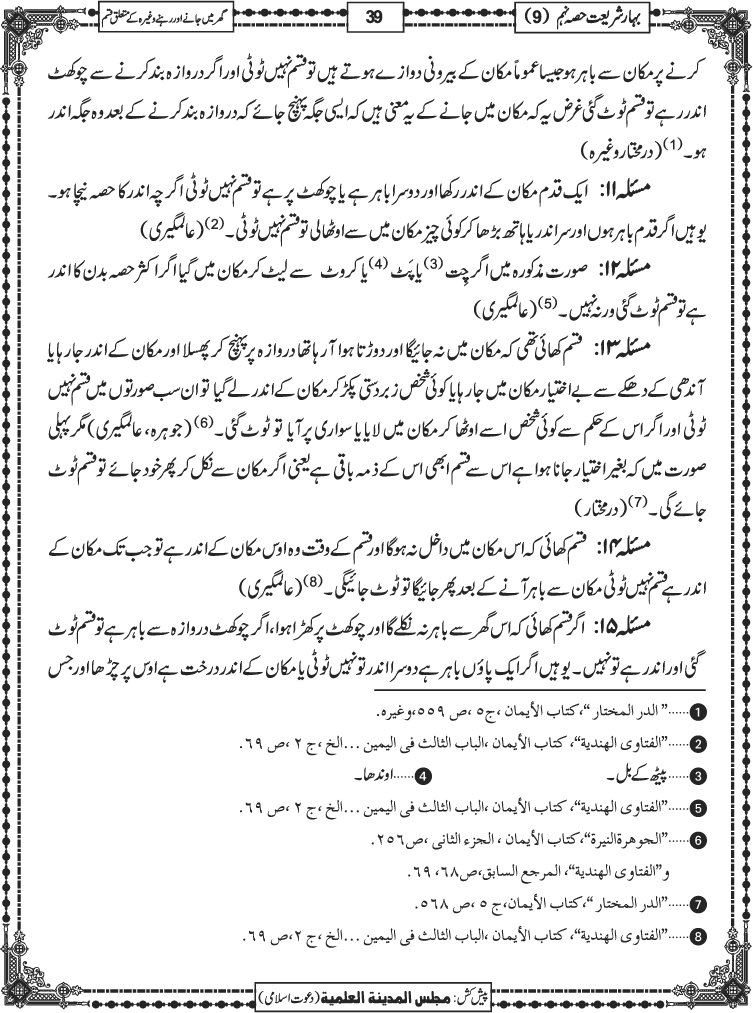 بہار شریعت حصہ نہم (9)
39
گھر میں جانے اور رہنے وغیرہ کے متعلق قسم
کرنے پر مکان سے باہر ہو جیسا عموماً مکان کے بیرونی دوازے ہوتے ہیں تو قسم نہیں ٹوٹی اور اگر دروازہ بند کرنے سے چوکھٹ
اندر رہے تو قسم ٹوٹ گئی غرض یہ کہ مکان میں جانے کے یہ معنی ہیں کہ ایسی جگہ پہنچ جائے کہ دروازہ بند کرنے کے بعد وہ جگہ اندر
ہو۔(1) (درمختار وغیرہ)
مسئلہ ۱۱: ایک قدم مکان کے اندر رکھا اور دوسرا باہر ہے یا چوکھٹ پر ہے تو قسم نہیں ٹوٹی اگرچہ اندر کا حصہ نیچا ہو۔
یو ہیں اگر قدم باہر ہوں اور سر اندر یا ہاتھ بڑھا کر کوئی چیز مکان میں سے اوٹھالی تو قسم نہیں ٹوٹی۔(2) (عالمگیری)
مسئلہ ۱۲: صورت مذکورہ میں اگر چِت(3) یا پَٹ(4) یا کروٹ سے لیٹ کر مکان میں گیا اگر اکثر حصہ بدن کا اندر
ہے تو قسم ٹوٹ گئی ورنہ نہیں۔(5) (عالمگیری)
مسئلہ ۱۳: قسم کھائی تھی کہ مکان میں نہ جائیگا اور دوڑتا ہوا آرہا تھا دروازہ پر پہنچ کر پھسلا اور مکان کے اندر جارہا یا
آندھی کے دھکے سے بے اختیار مکان میں جارہا یا کوئی شخص زبردستی پکڑ کر مکان کے اندر لے گیا تو ان سب صورتوں میں قسم نہیں
ٹوٹی اور اگر اس کے حکم سے کوئی شخص اسے اوٹھا کر مکان میں لایا یا سواری پر آیا تو ٹوٹ گئی۔(6) (جوہرہ، عالمگیری) مگر پہلی
صورت میں کہ بغیر اختیار جانا ہوا ہے اس سے قسم ابھی اس کے ذمہ باقی ہے یعنی اگر مکان سے نکل کر پھر خود جائے تو قسم ٹوٹ
جائے گی۔(7) (درمختار)
مسئلہ ۱۴: قسم کھائی کہ اس مکان میں داخل نہ ہوگا اور قسم کے وقت وہ اوس مکان کے اندر ہے تو جب تک مکان کے
اندر ہے قسم نہیں ٹوٹی مکان سے باہر آنے کے بعد پھر جائیگا تو ٹوٹ جائیگی۔(8) (عالمگیری)
مسئلہ ۱۵: اگر قسم کھائی کہ اس گھر سے باہر نہ نکلے گا اور چوکھٹ پر کھڑا ہوا، اگر چوکھٹ دروازہ سے باہر ہے تو قسم ٹوٹ
گئی اور اندر ہے تو نہیں۔ یو ہیں اگر ایک پاؤں باہر ہے دوسرا اندر تو نہیں ٹوٹی یا مکان کے اندر درخت ہے اوس پر چڑھا اور جس
1 ......"الدر المختار"،کتاب الأیمان ،ج۵ ،ص ۵۵۹،وغیرہ.
2 ......"الفتاوی الھندیة"، کتاب الأیمان ،الباب الثالث فی الیمین ...الخ ،ج ۲ ،ص ۶۹.
3 ......پیٹھ کے بل۔ 4 ......اوندھا۔
5 ......"الفتاوی الھندیة"، کتاب الأیمان ،الباب الثالث فی الیمین ...الخ ،ج ۲ ،ص ۶۹.
6 ......"الجوھرة النیرة"،کتاب الأیمان ، الجزء الثانی ،ص۲۵۶.
و"الفتاوی الھندیة"، المرجع السابق،ص۶۸، ۶۹.
7 ......"الدر المختار"،کتاب الأیمان،ج ۵ ،ص ۵۶۸.
8 ......"الفتاوی الھندیة"، کتاب الأیمان ،الباب الثالث فی الیمین ...الخ ،ج ۲،ص ۶۹.
پیش کش: مجلس المدینة العلمیة (دعوت اسلامی)